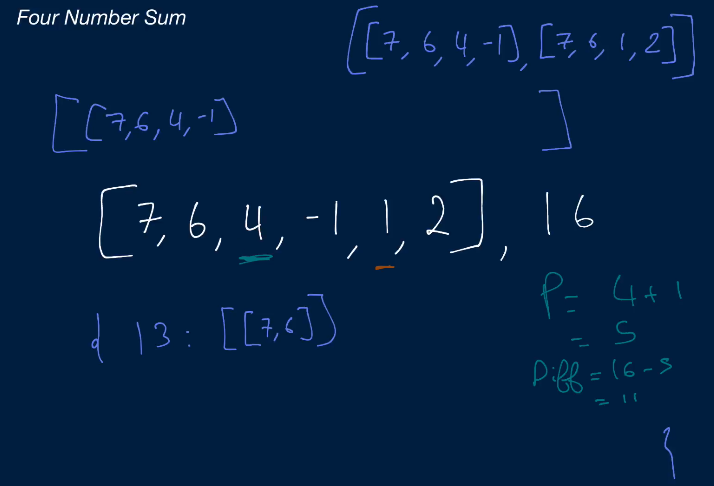 Four Number Sum
[[7, 6, 4, -1], [7, 6, 1, 2]]
[[7, 6, 4, -1] ]
[7, 6, 4, -1, 1, 2], 16
P = 4 + 1
= 5
{ 13 : [[7, 6]]
Diff = 16 - 5
= 11
}